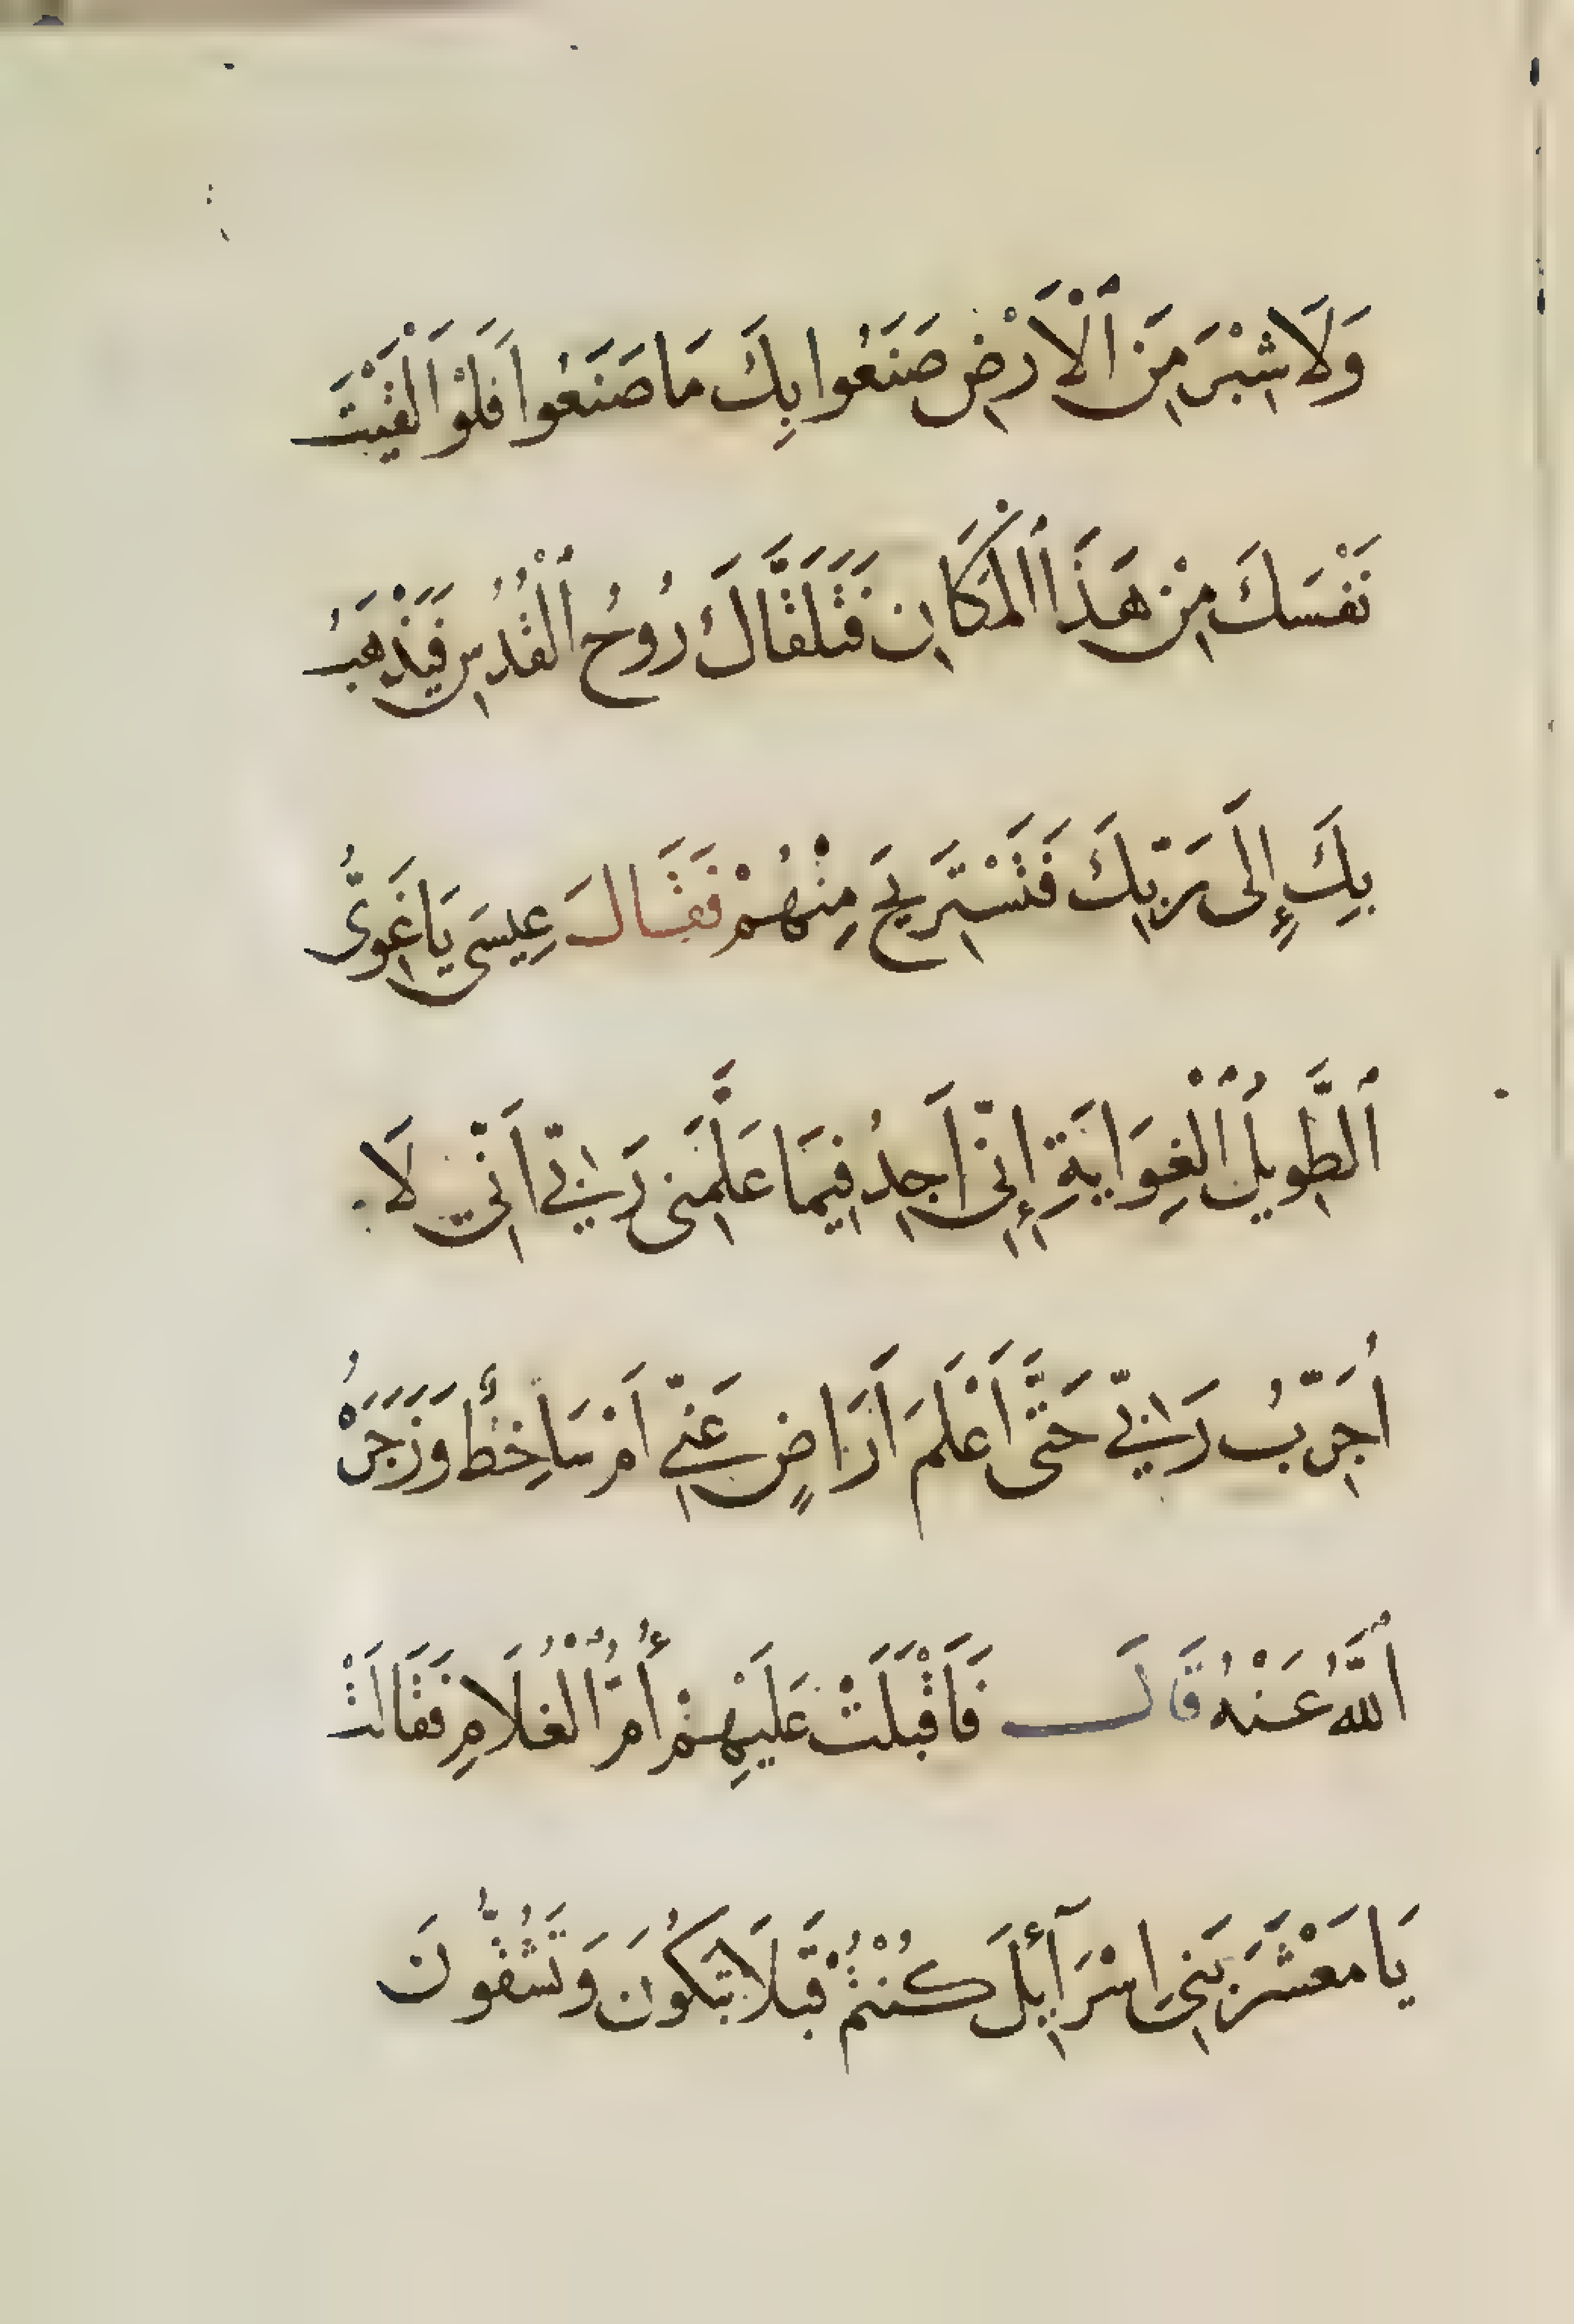 وَلَا شِبْرَ مِنَ ٱلْأَرْضِ صَنَعُوا بِكَ مَا صَنَعُوا فَلَوْ أَلْقَيْتَ
نَفْسَكَ مِنْ هَذَا ٱلْمَكَانِ فَتَلَقَّاكَ رُوحُ ٱلْقُدُسِ فَيَذْهَبُ
بِكَ إِلَى رَبِّكَ فَتَسْتَرِيحَ مِنْهُمْ فَقَالَ عِيسَى يَا غَوِىُّ
ٱلطَّوِيلُ ٱلْغِوَايَةِ إِنِّى أَجِدُ فِيمَا عَلَّمَنِى رَبِّى أَنِّى لَا
أُجَرِّبُ رَبِّى حَتَّى أَعْلَمَ أَرَاضٍ عَنِّى أَمْ سَاخِطٌ وَزَجَرَهُ
ٱللَّهُ عَنْهُ قَالَ فَأَقْبَلَتْ عَلَيْهِمْ أُمُّ ٱلْغُلَامِ فَقَالَتْ
يَا مَعْشَرَ بَنِى إِسْرَآئِلَ كُنْتُمْ قَبْلَ تَبْكُونَ وَتَشُقُّونَ